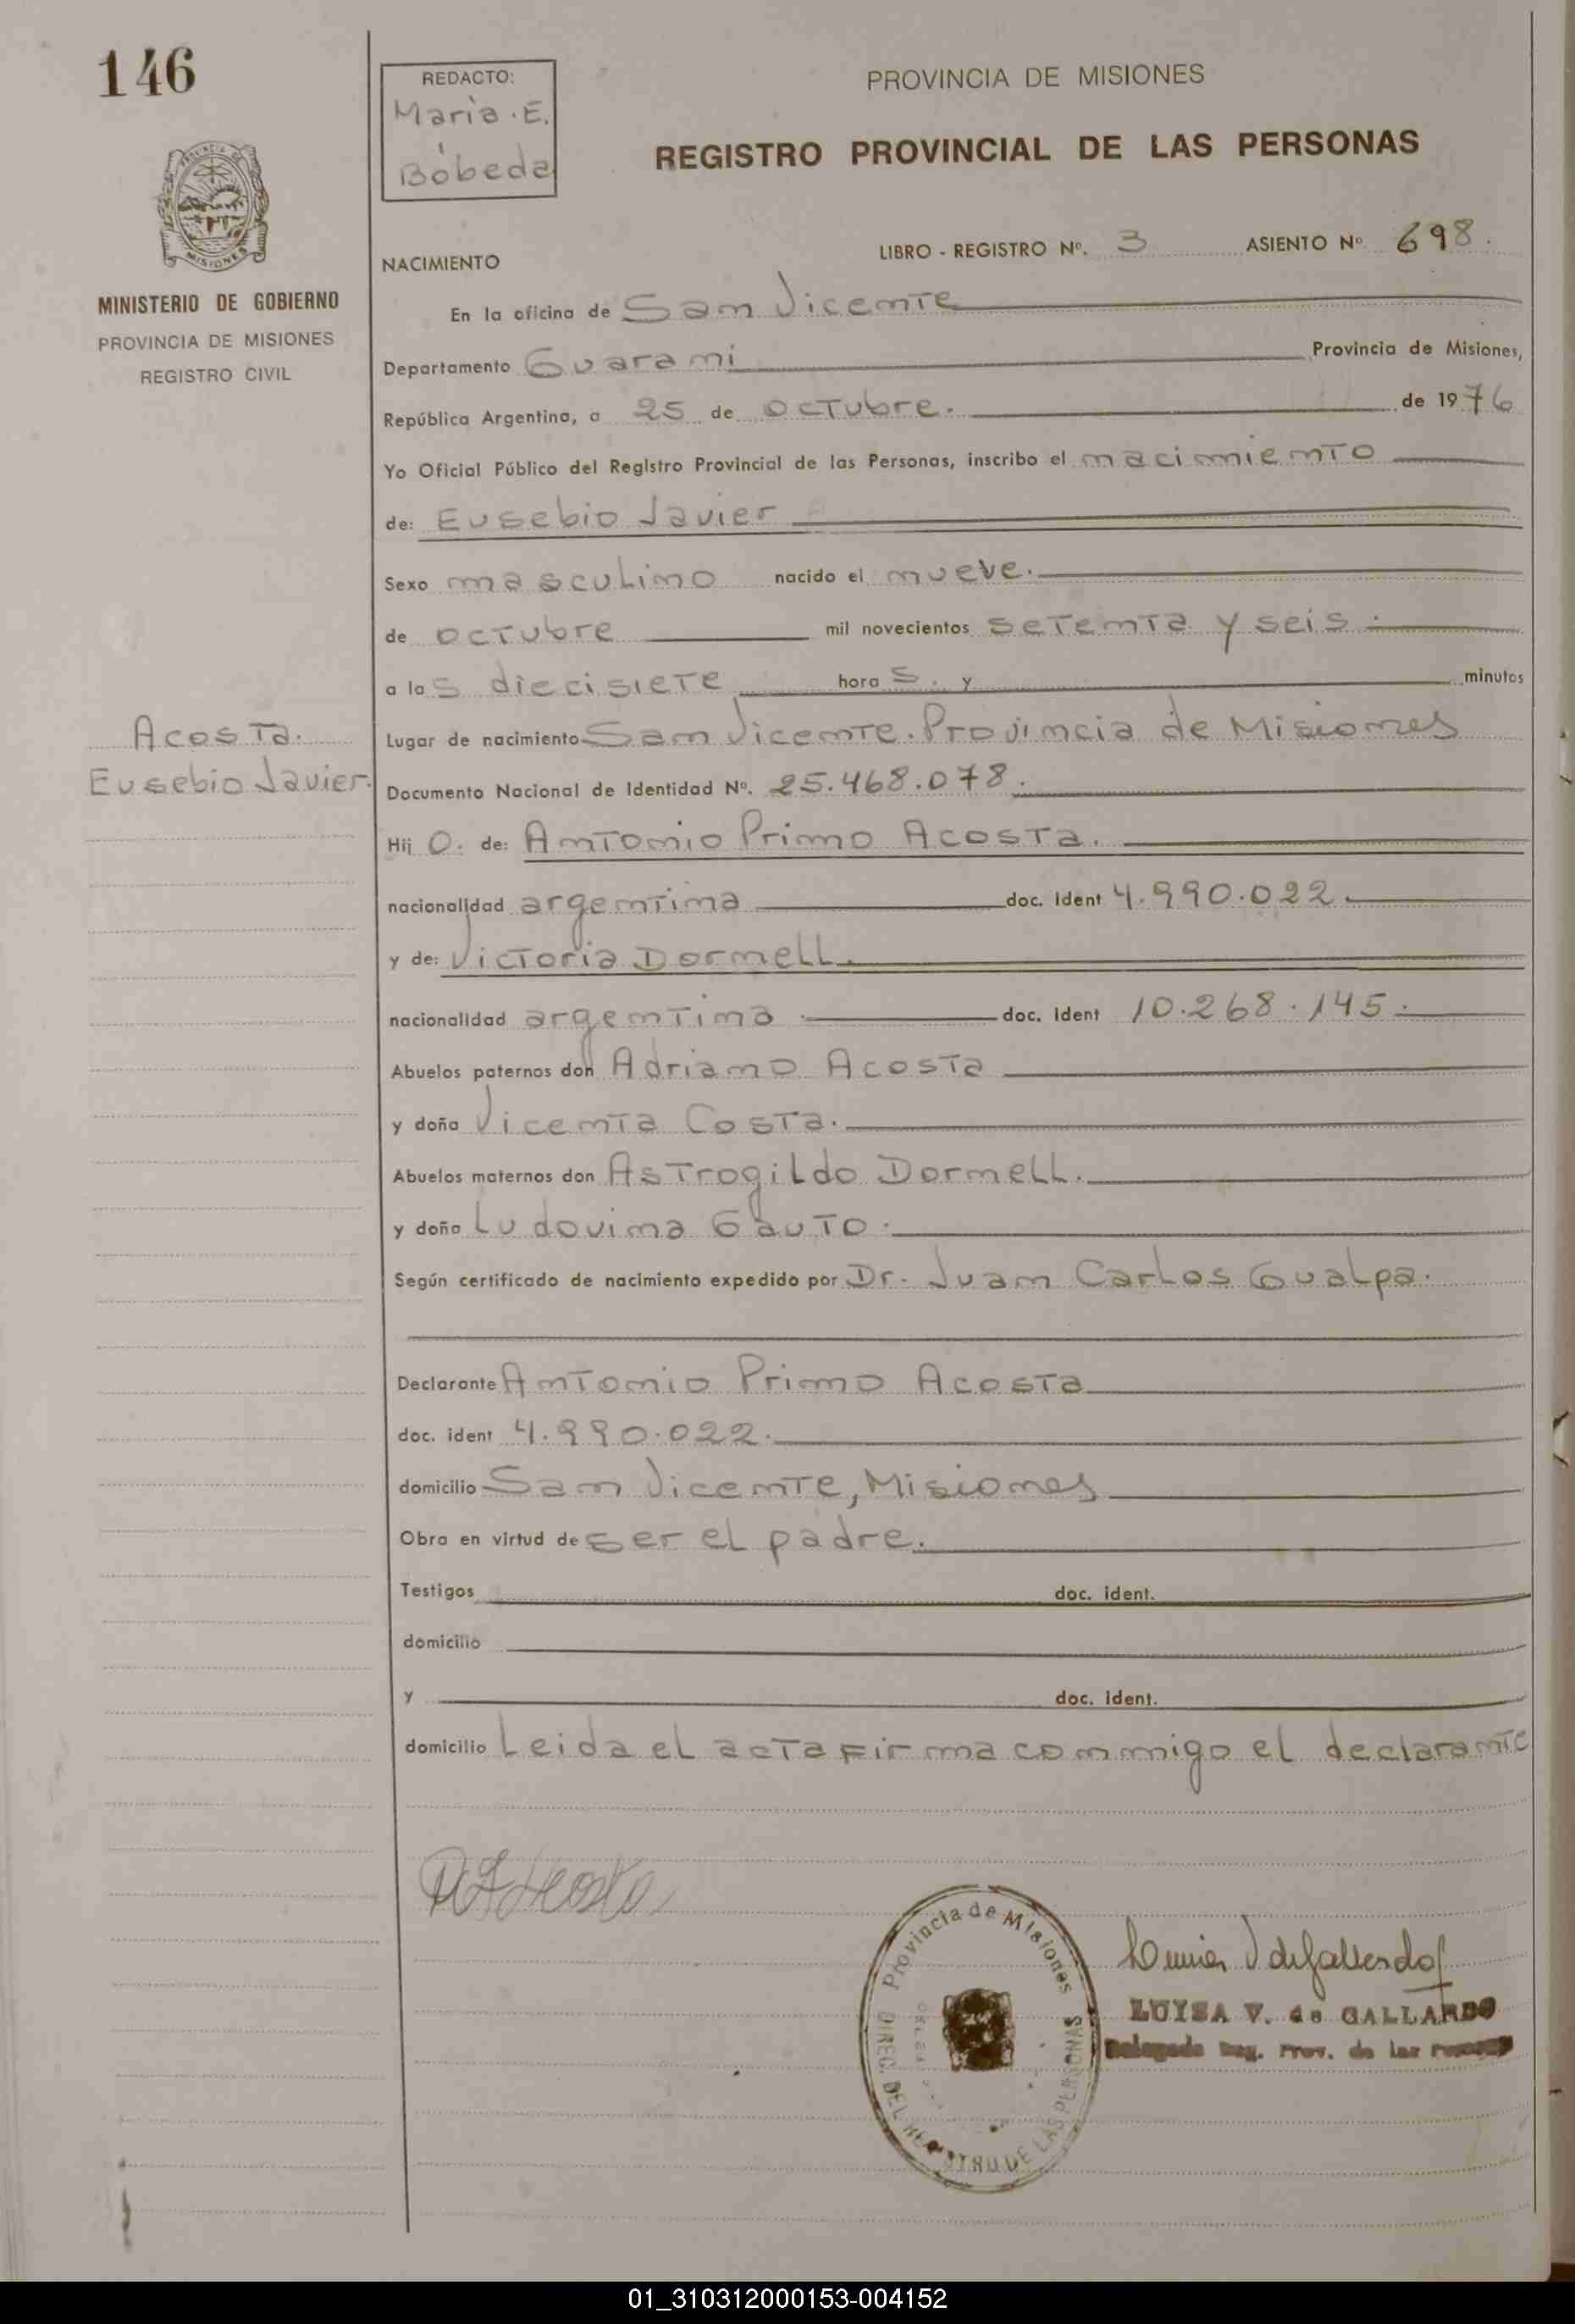 146
REDACTO:
Maria E.
Bóbeda
PROVINCIA DE MISIONES
REGISTRO PROVINCIAL DE LAS PERSONAS
MISIONES
MINISTERIO DE GOBIERNO
PROVINCIA DE MISIONES
REGISTRO CIVIL
NACIMIENTO
LIBRO - REGISTRO Nº. 3 ASIENTO Nº 698.
En la oficina de San Vicente
Departamento Guarani Provincia de Misiones,
República Argentina, a 25 de octubre. de 1976
Yo Oficial Público del Registro Provincial de las Personas, inscribo el nacimiento
de: Eusebio Javier
Sexo masculino nacido el nueve.
de octubre mil novecientos setenta y seis.
a las diecisiete horas. y minutos
Acosta.
Eusebio Javier.
Lugar de nacimiento San Vicente. Provincia de Misiones
Documento Nacional de Identidad Nº. 25.468.078.
Hijo. de: Antonio Primo Acosta.
nacionalidad argentina doc. ident 4.990.022.
y de: Victoria Dornell.
nacionalidad argentina. doc. ident 10.268.145.
Abuelos paternos don Adriano Acosta
y doña Vicenta Costa.
Abuelos maternos don Astrogildo Dornell.
y doña Ludovina Gauto.
Según certificado de nacimiento expedido por Dr. Juan Carlos Gualpa.
Declarante Antonio Primo Acosta
doc. ident 4.990.022.
domicilio San Vicente, Misiones
Obra en virtud de ser el padre.
Testigos doc. ident.
domicilio
y doc. ident.
domicilio Leida el acta firma conmigo el declarante
Provincia de Misiones
DIREC. DEL REGISTRO DE LAS PERSONAS
LUISA V. de GALLARDO
Delegada Reg. Prov. de las Personas
01_310312000153-004152